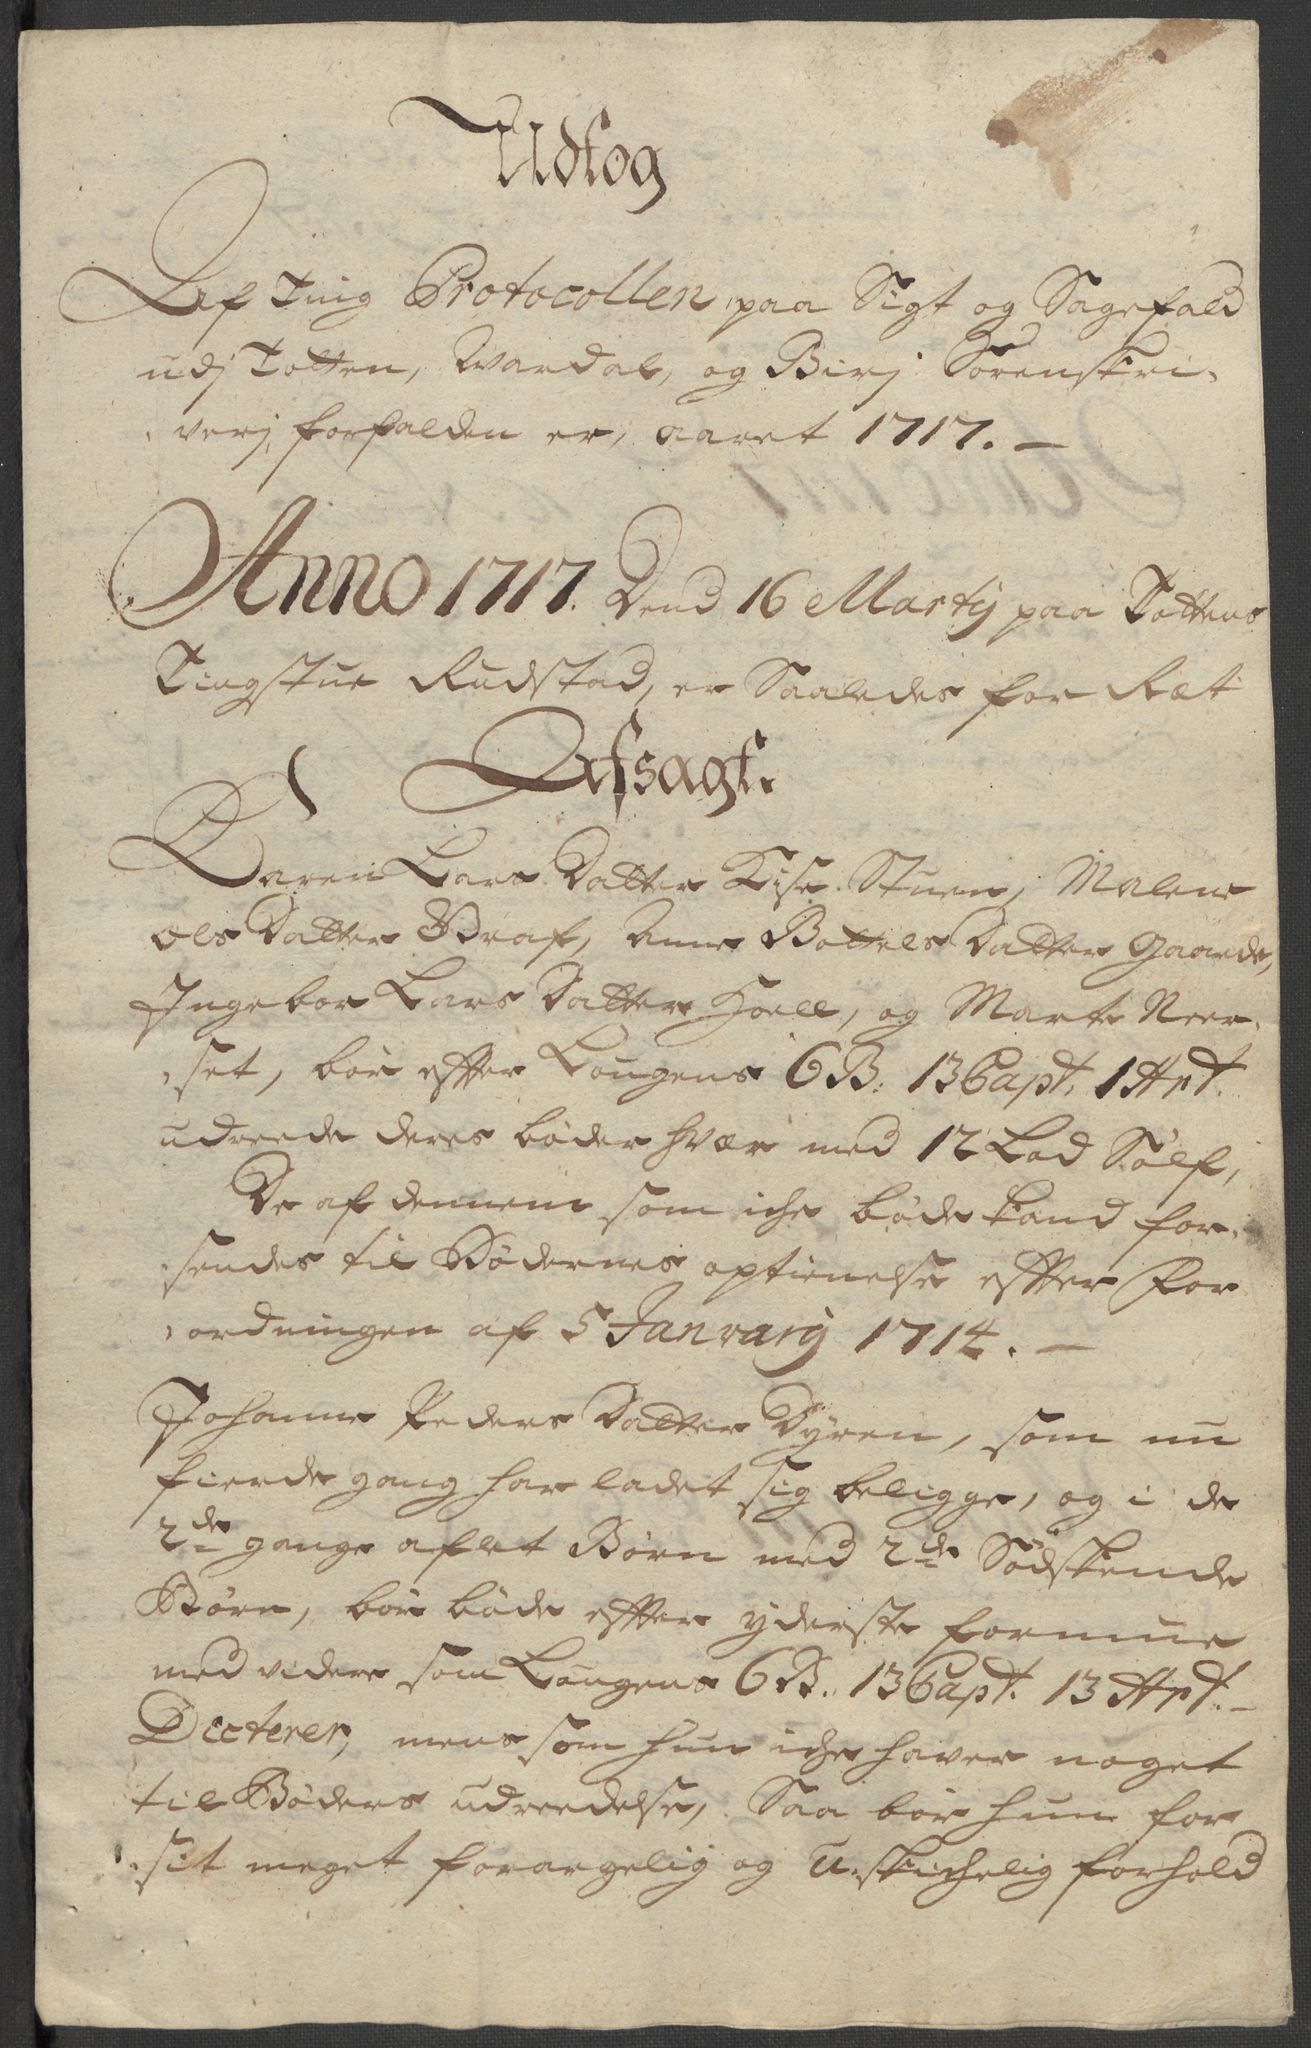 Udtog
Af Ting Protocollen paa Sigt og Sagefald
udj Totten, Wardal, og Birj Sorenskri-
verj, forfalden er, aaret 1717. –
Anno 1717. Dend 16 Martij paa Tottens
Tingstue Rudstad, er Saaledes for Ræt
Afsagt.
Karen Lars Datter Kise Stuen, Malene
Ols Datter Braf, Anne Bottels Datter Gaarde,
Ingebor Lars Datter Hoell, og Marte Neer-
set, bør effter Lougens 6 B. 13 Capt. 1 Art.
udreede deres bøder hver med 12 Lod Sølf,
De af dennem som iche bøde kand for-
sendes til Bødernes aftienelse effter For
ordningen af 5 Janvarij 1714. –
Johanne Peders Datter Dyren, som nu
fierde gang har ladet sig beligge, og i de
2de gange aflet Børn med 2de Sødskende
Børn, bør bøde effter yderste formue
med videre som Lougens 6 B. 13 Capt. 13 Art. –
Dicterer, mens som hun iche haver noget
til Bøders udreedelse, Saa bør hun for
sit meget forargelig og U-skichelig forhold